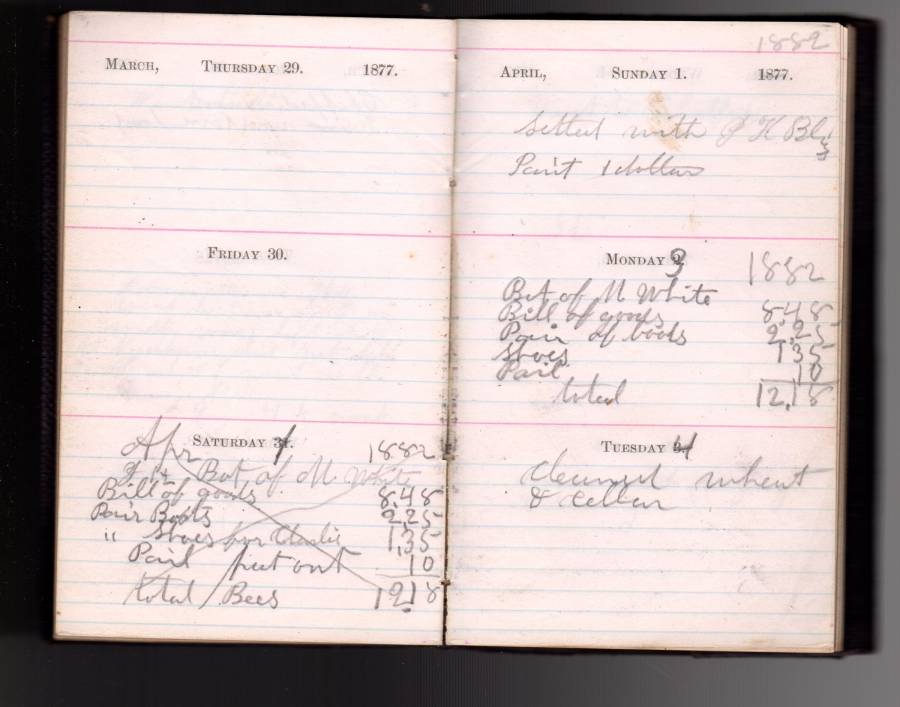 MARCH, THURSDAY 29. 1877.
FRIDAY 30.
SATURDAY 31.
Apr 1 1882
Bot of M White
Bill of goods 8,48
Pair Boots 2,25
" Shoes for Charlie 1,35
Pail put out 10
total / Bees 12.18
1882
APRIL, SUNDAY 1. 1877.
Setted with J K Bly
Paint 1 dollar
MONDAY 3 1882
Bot of M White
Bill of goods 8,48
Pair of boots 2,25
Shoes 1 35
Pail 10
total 12.18
TUESDAY 4
cleaned wheat
& cellar